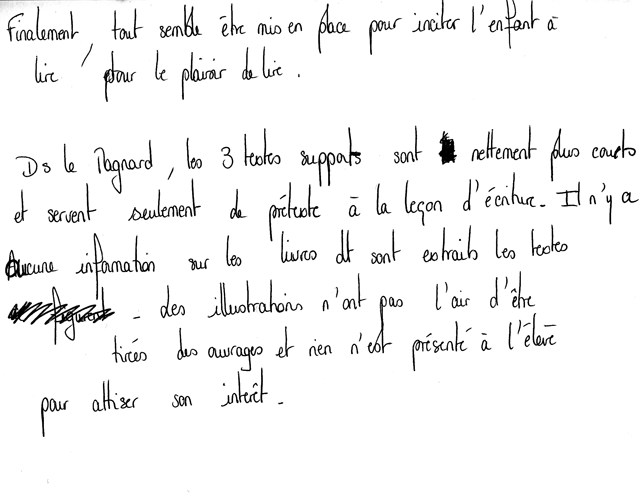 Finalement, tout semble être mis en place pour inciter l'enfant à
lire, pour le plaisir de lire.
Ds le Magnard, les 3 textes supports sont nettement plus courts
et servent seulement de prétexte à la leçon d'écriture. Il n'y a
Aucune information sur les livres dt sont extraits les textes
- des illustrations n'ont pas l'air d'être
tirées des ouvrages et rien n'est présenté à l'élève
pour attiser son interêt.